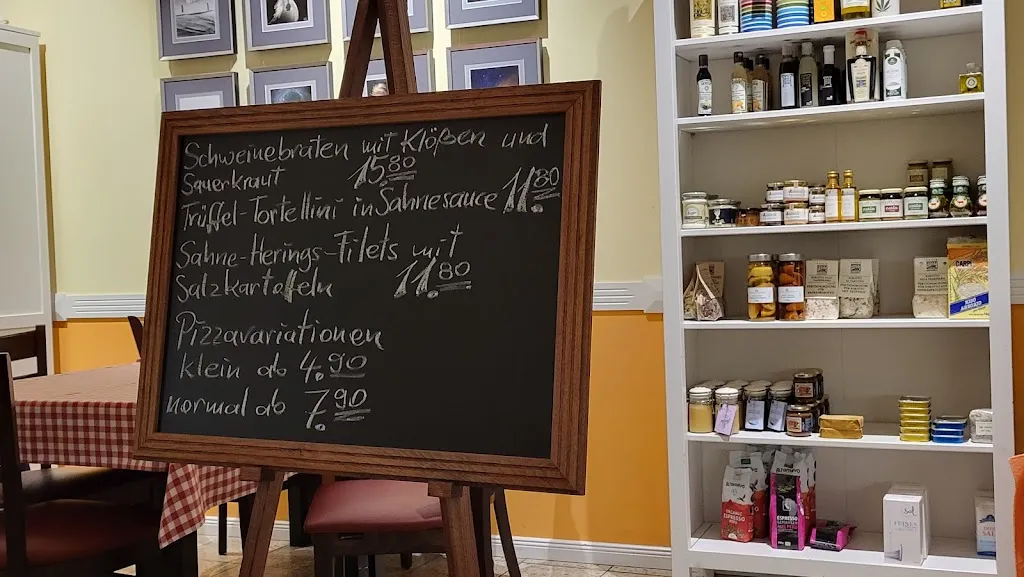 Schweinebraten mit Klößen und
Sauerkraut 15.80
Trüffel-Tortellini in Sahnesauce 11.80
Sahne-Herings-Filets mit
Salzkartofeln 11.80
Pizzavariationen
klein ab 4.90
normal ab 7.90
CARPI
ORGANIC
ESPRESSO
ESPRESSO